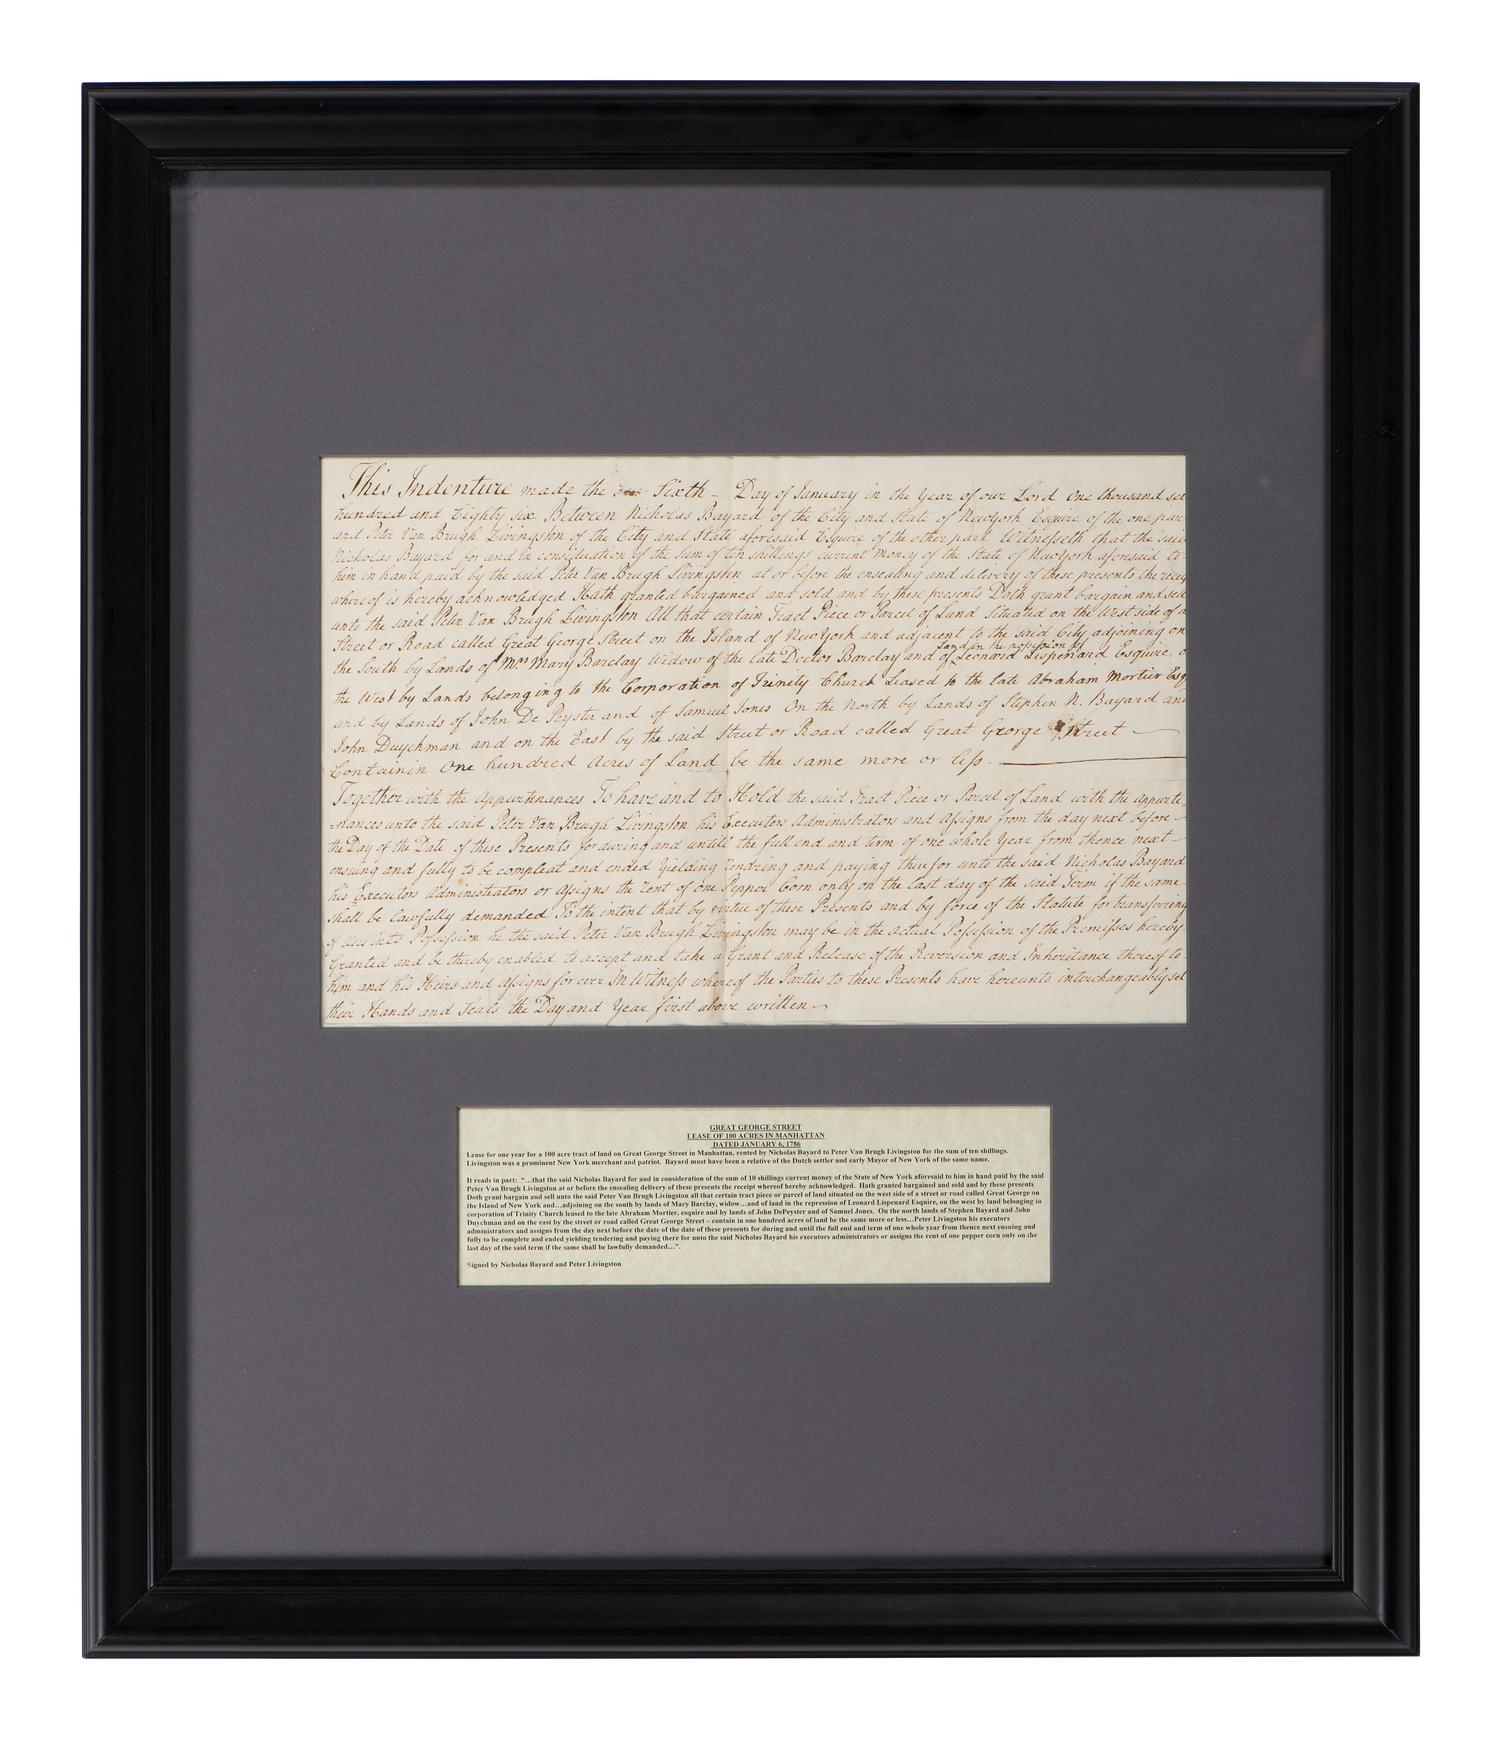 This Indenture made the Sixth – Day of January in the Year of our Lord One thousand sev
hundred and Eighty six Between Nicholas Bayard of the City and State of NewYork Esquire of the one par
and Peter Van Brugh Livingston of the City and State aforesaid Esquire of the other part Witnesseth that the said
Nicholas Bayard for and in consideration of the sum of ten shillings current money of the State of New york aforesaid to
him in hand paid by the said Peter Van Brugh Livingston at or before the ensealing and delivery of these presents the recei
whereof is hereby acknowledged Hath granted bargained and sold and by these presents Doth grant bargain and sell
unto the said Peter Van Brugh Livingston All that certain Tract Piece or Parcel of Land Situated on the West side of a
Street or Road called Great George Street on the Island of New York and adjacent to the said City adjoining on
Land in the possession of
the South by Lands of Mrs Mary Barclay Widow of the late Doctor Barclay and of Leonard Lispenard Esquire, o
the West by Lands belonging to the Corporation of Trinity Church Leased to the late Abraham Mortier Esq
and by Lands of John De Peyster and of Samuel Jones On the North by Lands of Stephen N. Bayard and
John Duyckman and on the East by the said Street or Road called Great George Street –
Containin One hundred Acres of Land be the same more or less.
Together with the Appurtenances To have and to Hold the said Tract Piece or Parcel of Land with the appurte
=nances unto the said Peter Van Brugh Livingston his Executors Administrators and Assigns from the day next before –
the Day of the Date of these Presents for during and untill the full end and term of one whole Year from thence next –
ensuing and fully to be compleat and ended Yielding rendring and paying therefor unto the said Nicholas Bayard
his Executors Administrators or Assigns the rent of one Pepper Corn only on the last day of the said Term if the same
shall be lawfully demanded To the intent that by virtue of these Presents and by force of the Statute for transferring
of uses into Possession he the said Peter Van Brugh Livingston may be in the actual Possession of the Premisses hereby
Granted and be thereby enabled to accept and take a Grant and Release of the Reversion and Inheritance thereof to
him and his Heirs and Assigns for ever In Witness whereof the Parties to these Presents have hereunto interchangeably set
their Hands and Seals the Day and Year first above written –
GREAT GEORGE STREET
LEASE OF 100 ACRES IN MANHATTAN
DATED JANUARY 6, 1786
Lease for one year for a 100 acre tract of land on Great George Street in Manhattan, rented by Nicholas Bayard to Peter Van Brugh Livingston for the sum of ten shillings.
Livingston was a prominent New York merchant and patriot. Bayard must have been a relative of the Dutch settler and early Mayor of New York of the same name.
It reads in part: “…that the said Nicholas Bayard for and in consideration of the sum of 10 shillings current money of the State of New York aforesaid to him in hand paid by the said
Peter Van Brugh Livingston at or before the ensealing delivery of these presents the receipt whereof hereby acknowledged. Hath granted bargained and sold and by these presents
Doth grant bargain and sell unto the said Peter Van Brugh Livingston all that certain tract piece or parcel of land situated on the west side of a street or road called Great George on
the Island of New York and…adjoining on the south by lands of Mary Barclay, widow…and of land in the repression of Leonard Lispenard Esquire, on the west by land belonging to
corporation of Trinity Church leased to the late Abraham Mortier, esquire and by lands of John DePeyster and of Samuel Jones. On the north lands of Stephen Bayard and John
Duychman and on the east by the street or road called Great George Street – contain in one hundred acres of land be the same more or less…Peter Livingston his executors
administrators and assigns from the day next before the date of the date of these presents for during and until the full end and term of one whole year from thence next ensuing and
fully to be complete and ended yielding tendering and paying there for unto the said Nicholas Bayard his executors administrators or assigns the rent of one pepper corn only on the
last day of the said term if the same shall be lawfully demanded…”.
Signed by Nicholas Bayard and Peter Livingston